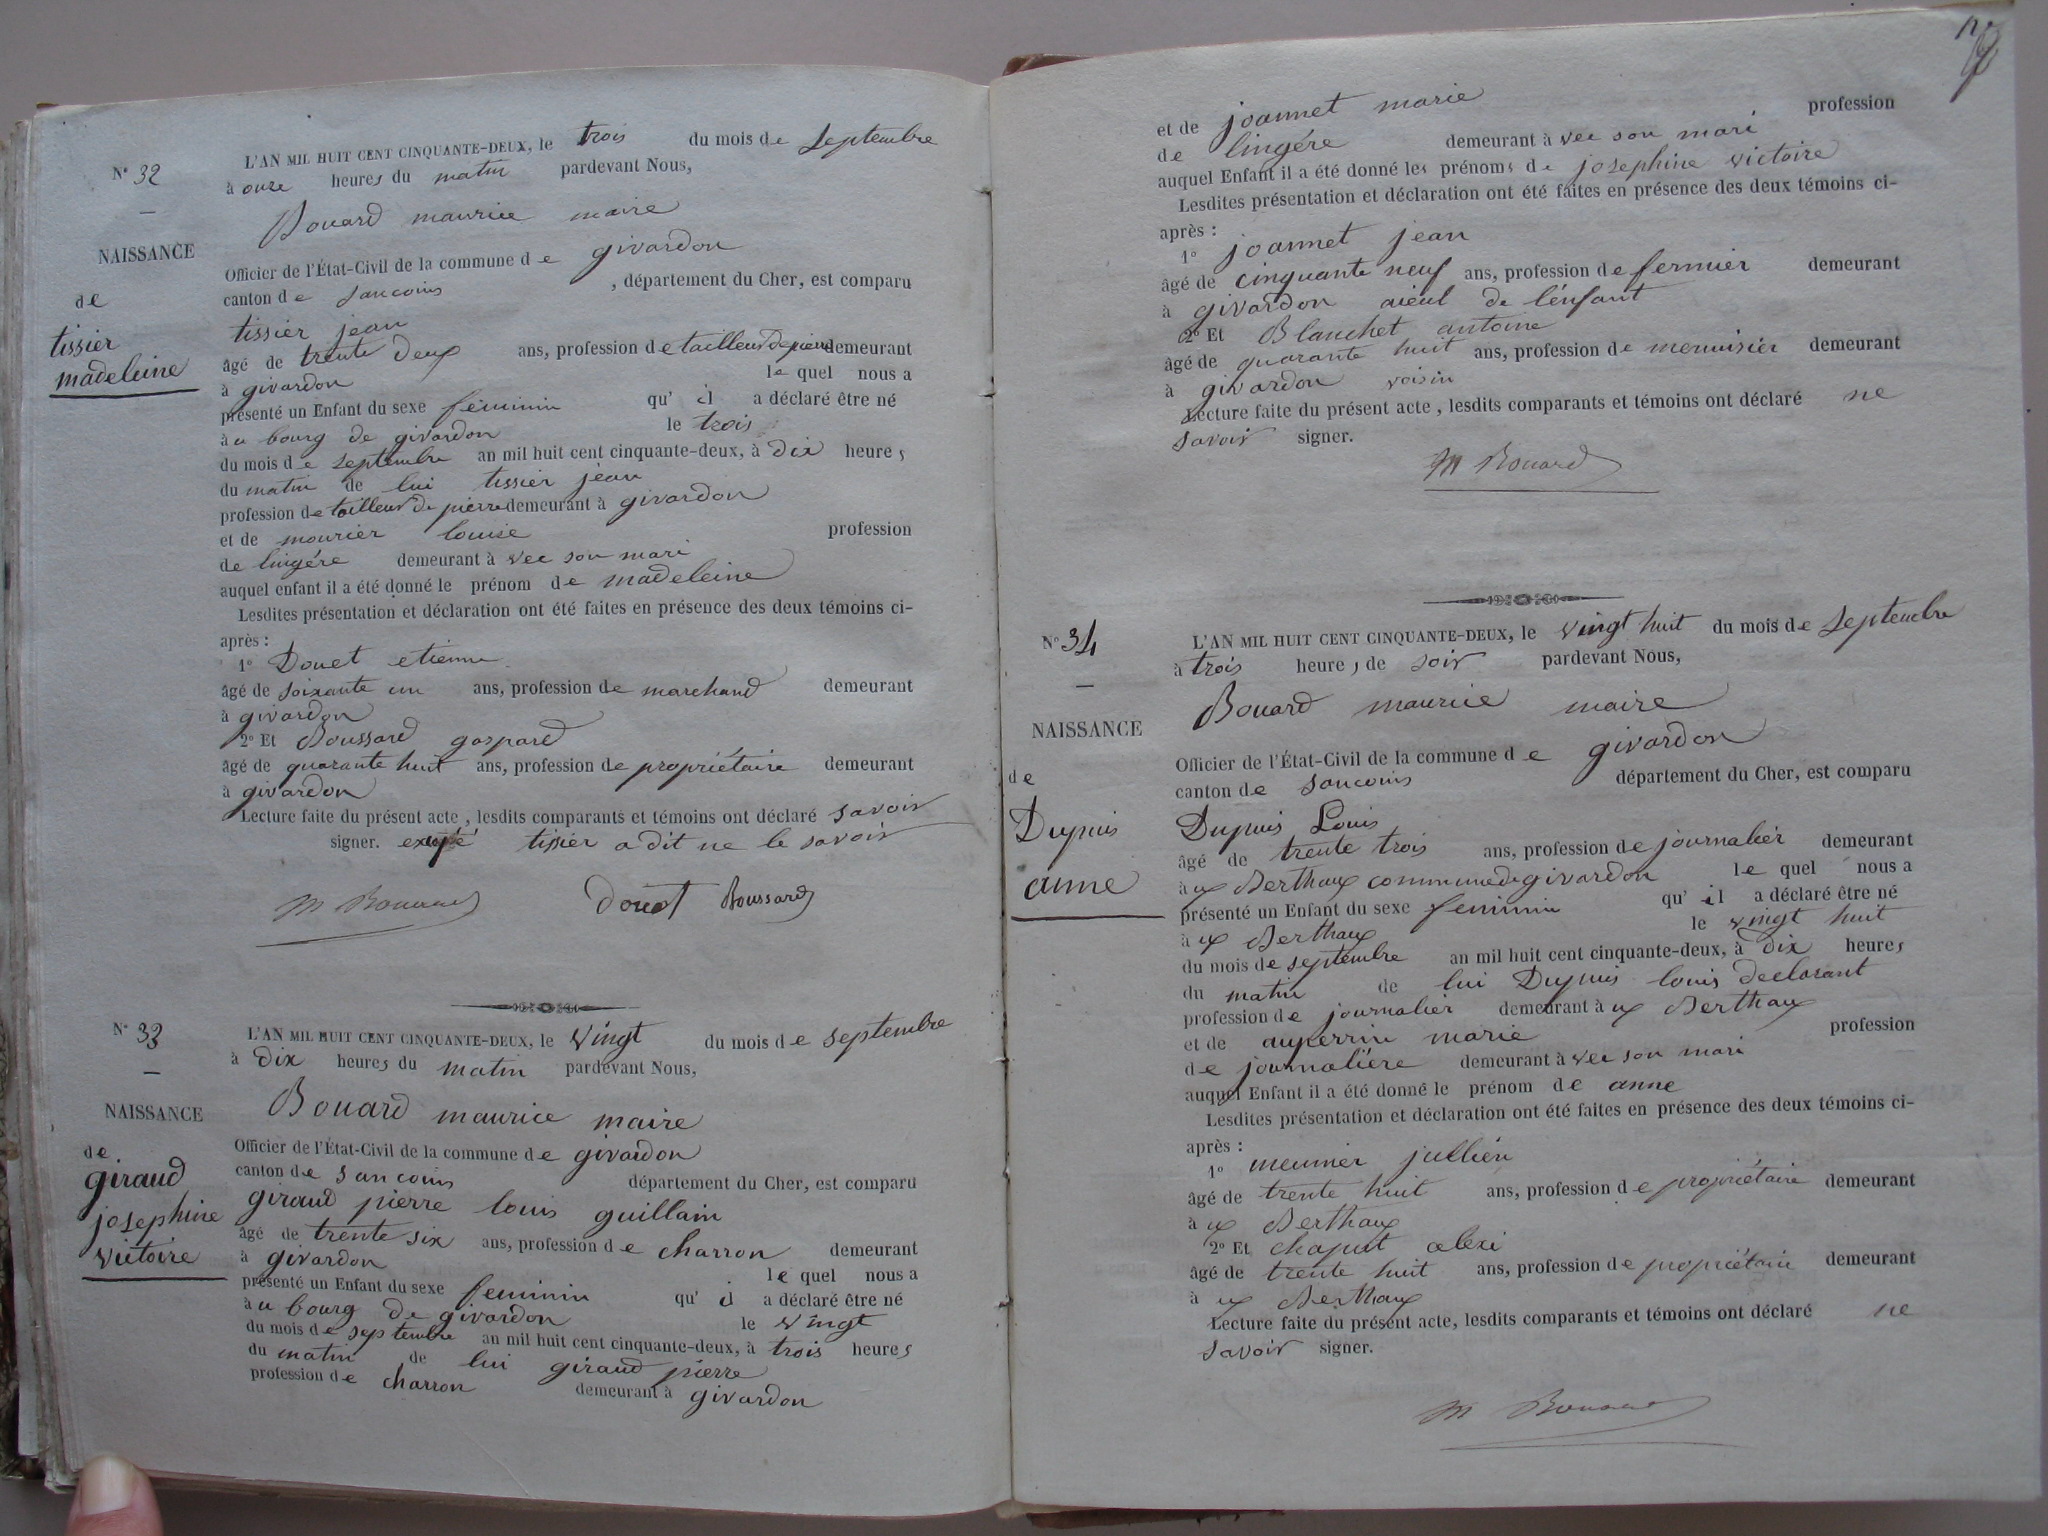 N° 32
—
NAISSANCE
de
tissier
madeleine
L'AN MIL HUIT CENT CINQUANTE-DEUX, le trois du mois de Septembre
à onze heures du matin pardevant Nous,
Bouard maurice maire
Officier de l'État-Civil de la commune de givardon
canton de Sancoins , département du Cher, est comparu
tissier jean
âgé de trente deux ans, profession de tailleur de pierre demeurant
à givardon le quel nous a
présenté un Enfant du sexe féminin qu' il a déclaré être né
à u bourg de givardon le trois
du mois de septembre an mil huit cent cinquante-deux, à dix heures
du matin de lui tissier jean
profession de tailleur de pierre demeurant à givardon
et de mourier louise profession
de lingére demeurant à vec son mari
auquel enfant il a été donné le prénom de madeleine
Lesdites présentation et déclaration ont été faites en présence des deux témoins ci-
après :
1° Douet etienne
âgé de soixante un ans, profession de marchand demeurant
à givardon
2° Et Boussard gaspard
âgé de quarante huit ans, profession de propriétaire demeurant
à givardon
Lecture faite du présent acte, lesdits comparants et témoins ont déclaré savoir
signer. tissier a dit ne le savoir
M Bouard Douet Boussard
N° 33
—
NAISSANCE
de
giraud
josephine
victoire
L'AN MIL HUIT CENT CINQUANTE-DEUX, le vingt du mois de septembre
à dix heures du matin pardevant Nous,
Bouard maurice maire
Officier de l'État-Civil de la commune de givardon
canton de sancoins département du Cher, est comparu
giraud pierre louis guillain
âgé de trente six ans, profession de charron demeurant
à givardon le quel nous a
présenté un Enfant du sexe feminin qu' il a déclaré être né
à u bourg de givardon le vingt
du mois de septembre an mil huit cent cinquante-deux, à trois heures
du matin de lui giraud pierre
profession de charron demeurant à givardon
et de joannet marie profession
de lingére demeurant à vec son mari
auquel Enfant il a été donné les prénoms de josephine victoire
Lesdites présentation et déclaration ont été faites en présence des deux témoins ci-
après :
1° joannet jean
âgé de cinquante neuf ans, profession de fermier demeurant
à givardon aieul de l'enfant
2° Et Blanchet antoine
âgé de quarante huit ans, profession de menuisier demeurant
à givardon voisin
Lecture faite du présent acte, lesdits comparants et témoins ont déclaré ne
savoir signer.
M Bouard
N° 34
—
NAISSANCE
de
Dupuis
anne
L'AN MIL HUIT CENT CINQUANTE-DEUX, le vingt huit du mois de Septembre
à trois heures de soir pardevant Nous,
Bouard maurice maire
Officier de l'État-Civil de la commune de givardon
canton de Sancoins département du Cher, est comparu
Dupuis Louis
âgé de trente trois ans, profession de journalier demeurant
à ux Berthaux commune de givardon le quel nous a
présenté un Enfant du sexe feminin qu' il a déclaré être né
à ux Berthaux le vingt huit
du mois de septembre an mil huit cent cinquante-deux, à dix heures
du matin de lui Dupuis louis declarant
profession de journalier demeurant à ux Berthaux
et de auperrin marie profession
de journalière demeurant à vec son mari
auquel Enfant il a été donné le prénom de anne
Lesdites présentation et déclaration ont été faites en présence des deux témoins ci-
après :
1° meunier jullien
âgé de trente huit ans, profession de propriétaire demeurant
à ux Berthaux
2° Et chaput alexi
âgé de trente huit ans, profession de propriétaire demeurant
à ux Berthaux
Lecture faite du présent acte, lesdits comparants et témoins ont déclaré ne
savoir signer.
M Bouard